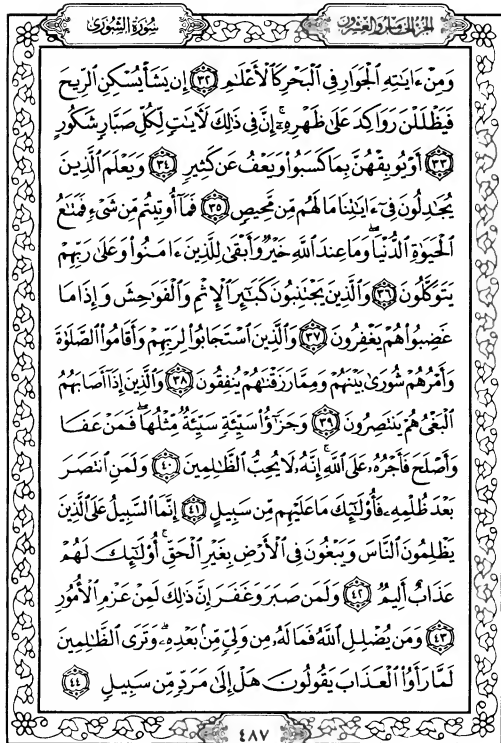 الجزء الخامس والعشرون
سورة الشورى
وَمِنْ ءَايَٰتِهِ الْجَوَارِ فِي الْبَحْرِ كَالْأَعْلَٰمِ ٣٢ إِن يَشَأْ يُسْكِنِ الرِّيحَ
فَيَظْلَلْنَ رَوَاكِدَ عَلَىٰ ظَهْرِهِۦٓ إِنَّ فِي ذَٰلِكَ لَءَايَٰتٍ لِّكُلِّ صَبَّارٍ شَكُورٍ
٣٣ أَوْ يُوبِقْهُنَّ بِمَا كَسَبُوا وَيَعْفُ عَن كَثِيرٍ ٣٤ وَيَعْلَمَ الَّذِينَ
يُجَٰدِلُونَ فِيٓ ءَايَٰتِنَا مَا لَهُم مِّن مَّحِيصٍ ٣٥ فَمَآ أُوتِيتُم مِّن شَيْءٍ فَمَتَٰعُ
الْحَيَوٰةِ الدُّنْيَا ۖ وَمَا عِندَ اللَّهِ خَيْرٌ وَأَبْقَىٰ لِلَّذِينَ ءَامَنُوا وَعَلَىٰ رَبِّهِمْ
يَتَوَكَّلُونَ ٣٦ وَالَّذِينَ يَجْتَنِبُونَ كَبَٰٓئِرَ الْإِثْمِ وَالْفَوَٰحِشَ وَإِذَا مَا
غَضِبُوا هُمْ يَغْفِرُونَ ٣٧ وَالَّذِينَ اسْتَجَابُوا لِرَبِّهِمْ وَأَقَامُوا الصَّلَوٰةَ
وَأَمْرُهُمْ شُورَىٰ بَيْنَهُمْ وَمِمَّا رَزَقْنَٰهُمْ يُنفِقُونَ ٣٨ وَالَّذِينَ إِذَآ أَصَابَهُمُ
الْبَغْيُ هُمْ يَنتَصِرُونَ ٣٩ وَجَزَٰٓؤُا سَيِّئَةٍ سَيِّئَةٌ مِّثْلُهَا ۖ فَمَنْ عَفَا
وَأَصْلَحَ فَأَجْرُهُۥ عَلَى اللَّهِ ۚ إِنَّهُۥ لَا يُحِبُّ الظَّٰلِمِينَ ٤٠ وَلَمَنِ انتَصَرَ
بَعْدَ ظُلْمِهِۦ فَأُولَٰٓئِكَ مَا عَلَيْهِم مِّن سَبِيلٍ ٤١ إِنَّمَا السَّبِيلُ عَلَى الَّذِينَ
يَظْلِمُونَ النَّاسَ وَيَبْغُونَ فِي الْأَرْضِ بِغَيْرِ الْحَقِّ ۚ أُولَٰٓئِكَ لَهُمْ
عَذَابٌ أَلِيمٌ ٤٢ وَلَمَن صَبَرَ وَغَفَرَ إِنَّ ذَٰلِكَ لَمِنْ عَزْمِ الْأُمُورِ
٤٣ وَمَن يُضْلِلِ اللَّهُ فَمَا لَهُۥ مِن وَلِيٍّ مِّنۢ بَعْدِهِۦ ۗ وَتَرَى الظَّٰلِمِينَ
لَمَّا رَأَوُا الْعَذَابَ يَقُولُونَ هَلْ إِلَىٰ مَرَدٍّ مِّن سَبِيلٍ ٤٤
٤٨٧